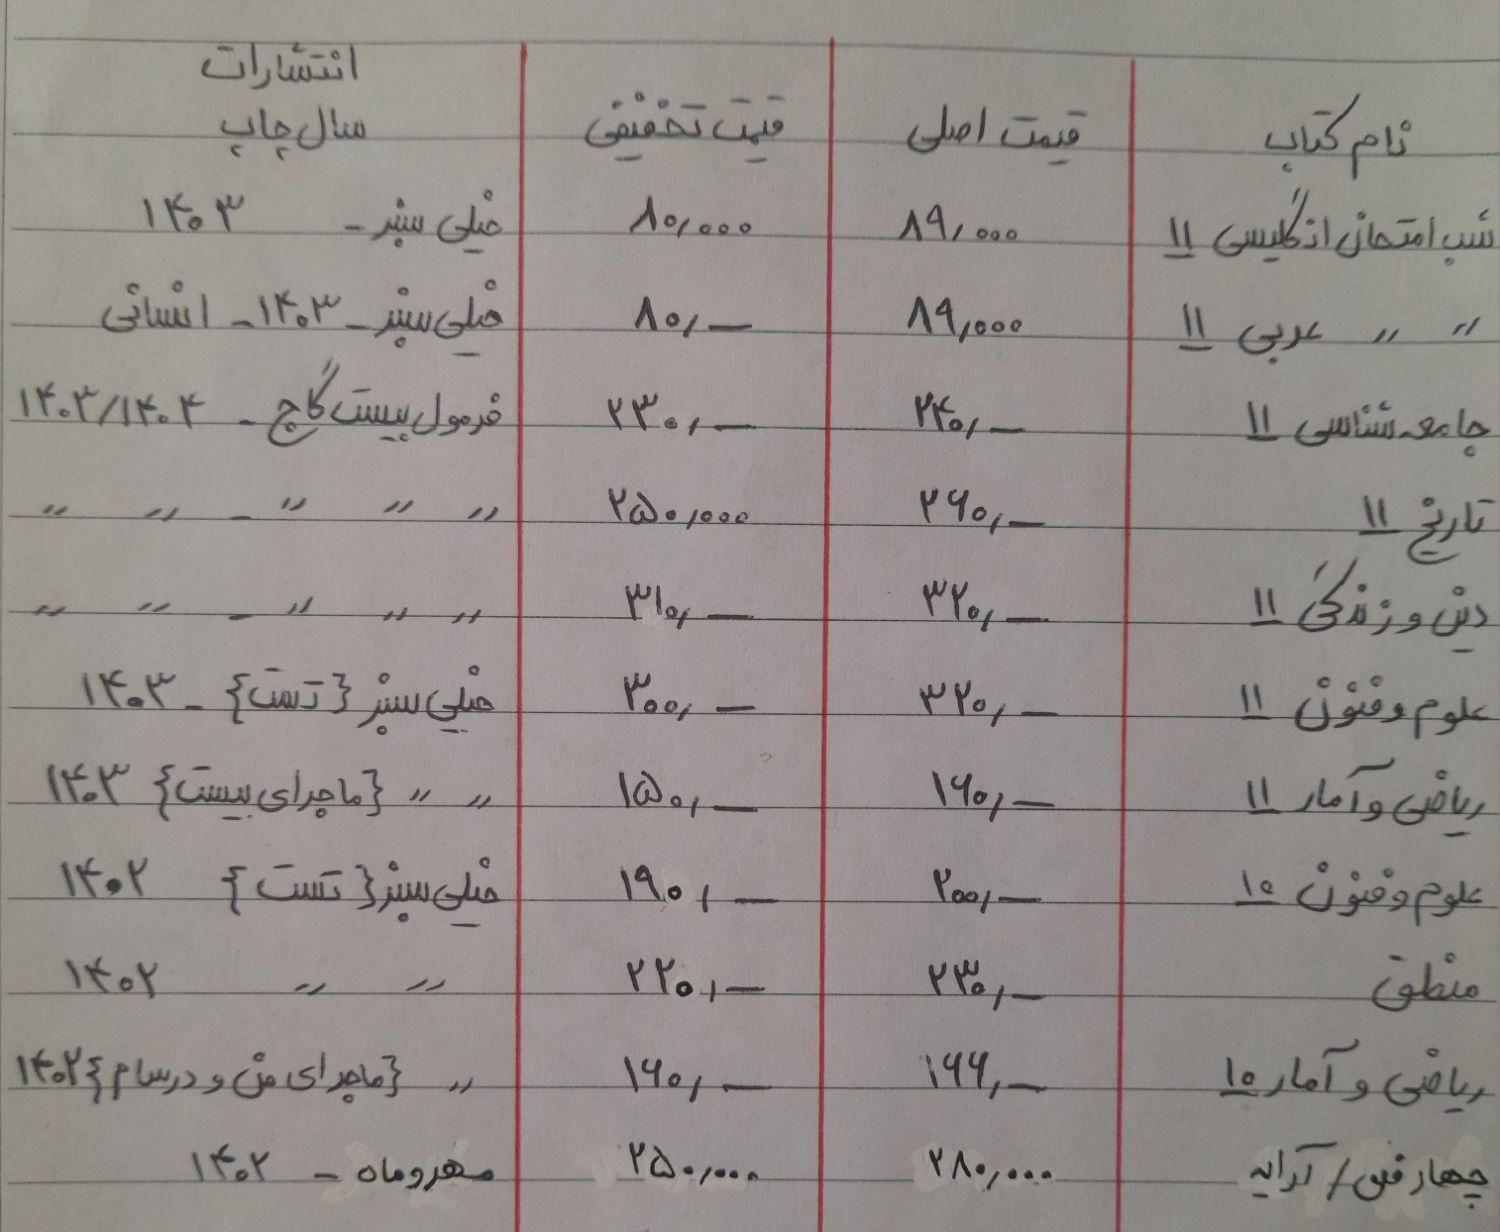 نام کتاب قیمت اصلی قیمت تخفیفی انتشارات سال چاپ
شب امتحان انگلیسی ۱۱ ۸۹,۰۰۰ ۸۰,۰۰۰ خیلی سبز - ۱۴۰۳
〃 〃 عربی ۱۱ ۸۹,۰۰۰ ۸۰,— خیلی سبز - ۱۴۰۳ - انسانی
جامعه شناسی ۱۱ ۲۴۰,— ۲۳۰,— فرمول بیست گاج - ۱۴۰۳/۱۴۰۴
تاریخ ۱۱ ۲۶۰,— ۲۵۰,۰۰۰ 〃 〃 〃 - 〃 〃
دین و زندگی ۱۱ ۳۲۰,— ۳۱۰,— 〃 〃 〃 - 〃 〃
علوم و فنون ۱۱ ۳۲۰,— ۳۰۰,— خیلی سبز {تست} - ۱۴۰۳
ریاضی و آمار ۱۱ ۱۶۰,— ۱۵۰,— 〃 〃 {ماجرای بیست} ۱۴۰۳
علوم و فنون ۱۰ ۲۰۰,— ۱۹۰,— خیلی سبز {تست} ۱۴۰۲
منطق ۲۳۰,— ۲۲۰,— 〃 〃 ۱۴۰۲
ریاضی و آمار ۱۰ ۱۶۶,— ۱۶۰,— 〃 {ماجرای من و درسام} ۱۴۰۲
چهار فن / آرایه ۲۸۰,۰۰۰ ۲۵۰,۰۰۰ مهروماه - ۱۴۰۲